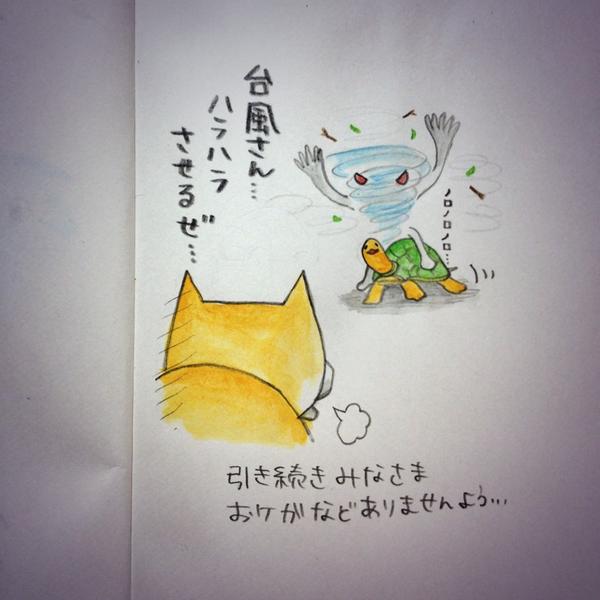 台風さん…
ハラハラ
させるぜ…
ノロノロノロ…
引き続きみなさま
おケガなどありませんよう…